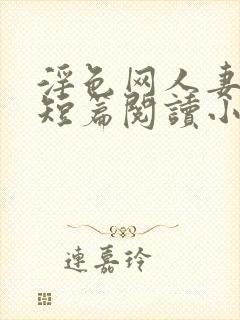 淫色网人妻
短篇閱讀小
連嘉玲